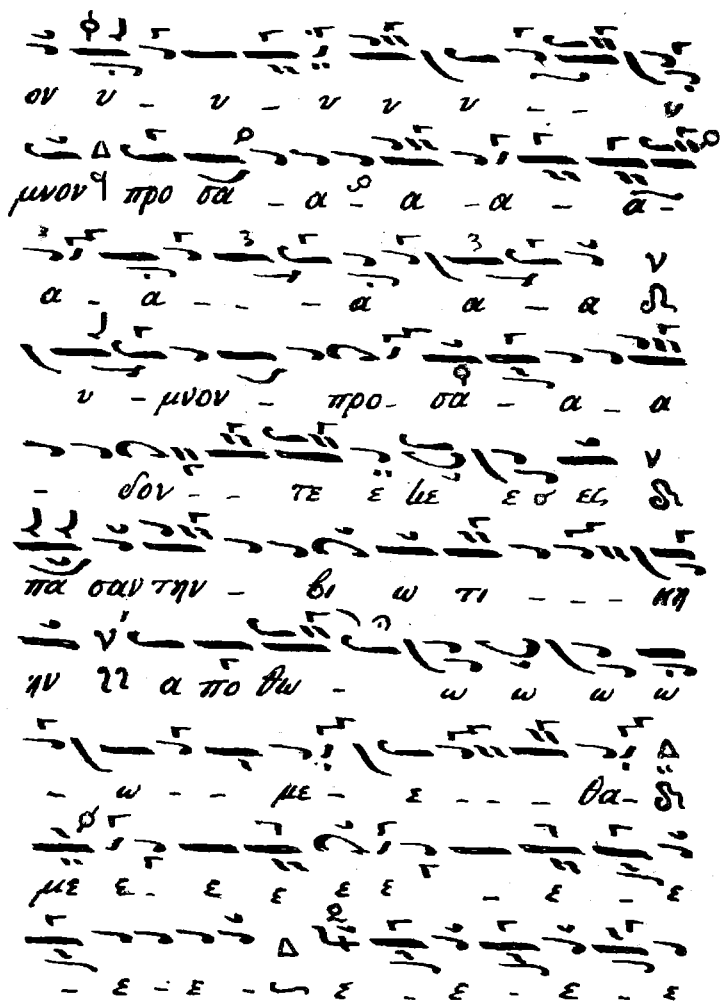 ον υ – υ – υ υ υ – – υ
μνον προ σα – α – α – α – α –
α – α – – – α α – α
υ – μνον – προ – σα – α – α
– δον – – τε ε με ε σ ες
πα σαν την – βι ω τι – – – κη
ην α πο θω – ω ω ω ω
– ω – – με – ε – – – θα –
με ε – ε ε ε ε – ε – ε
– ε – ε – ε – ε – ε